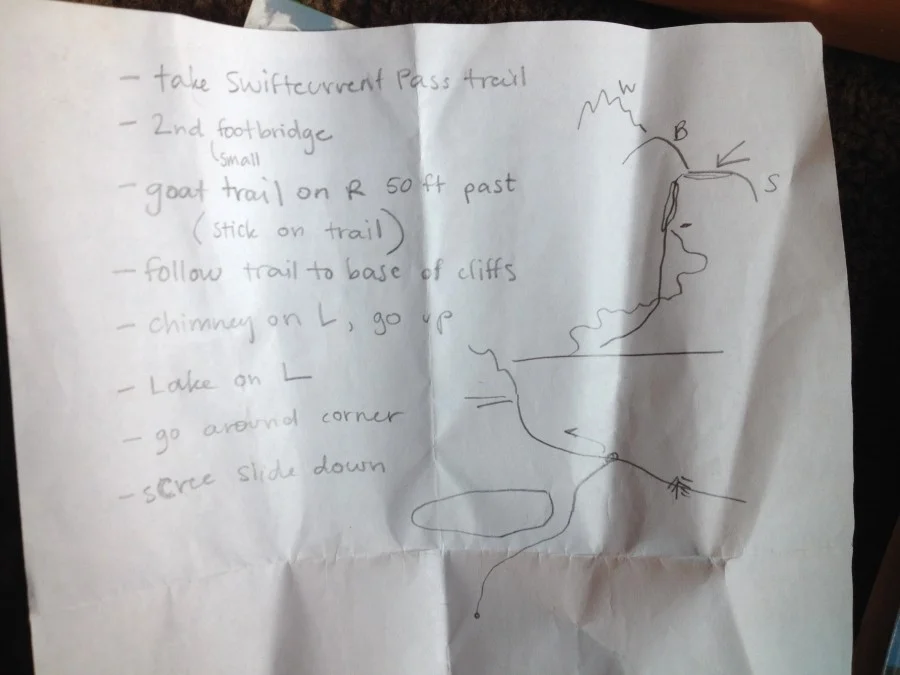 - take Swiftcurrent Pass trail
- 2nd footbridge
small
- goat trail on R 50 ft past
(stick on trail)
- follow trail to base of cliffs
- chimney on L, go up
- Lake on L
- go around corner
- scree slide down
W
B
S